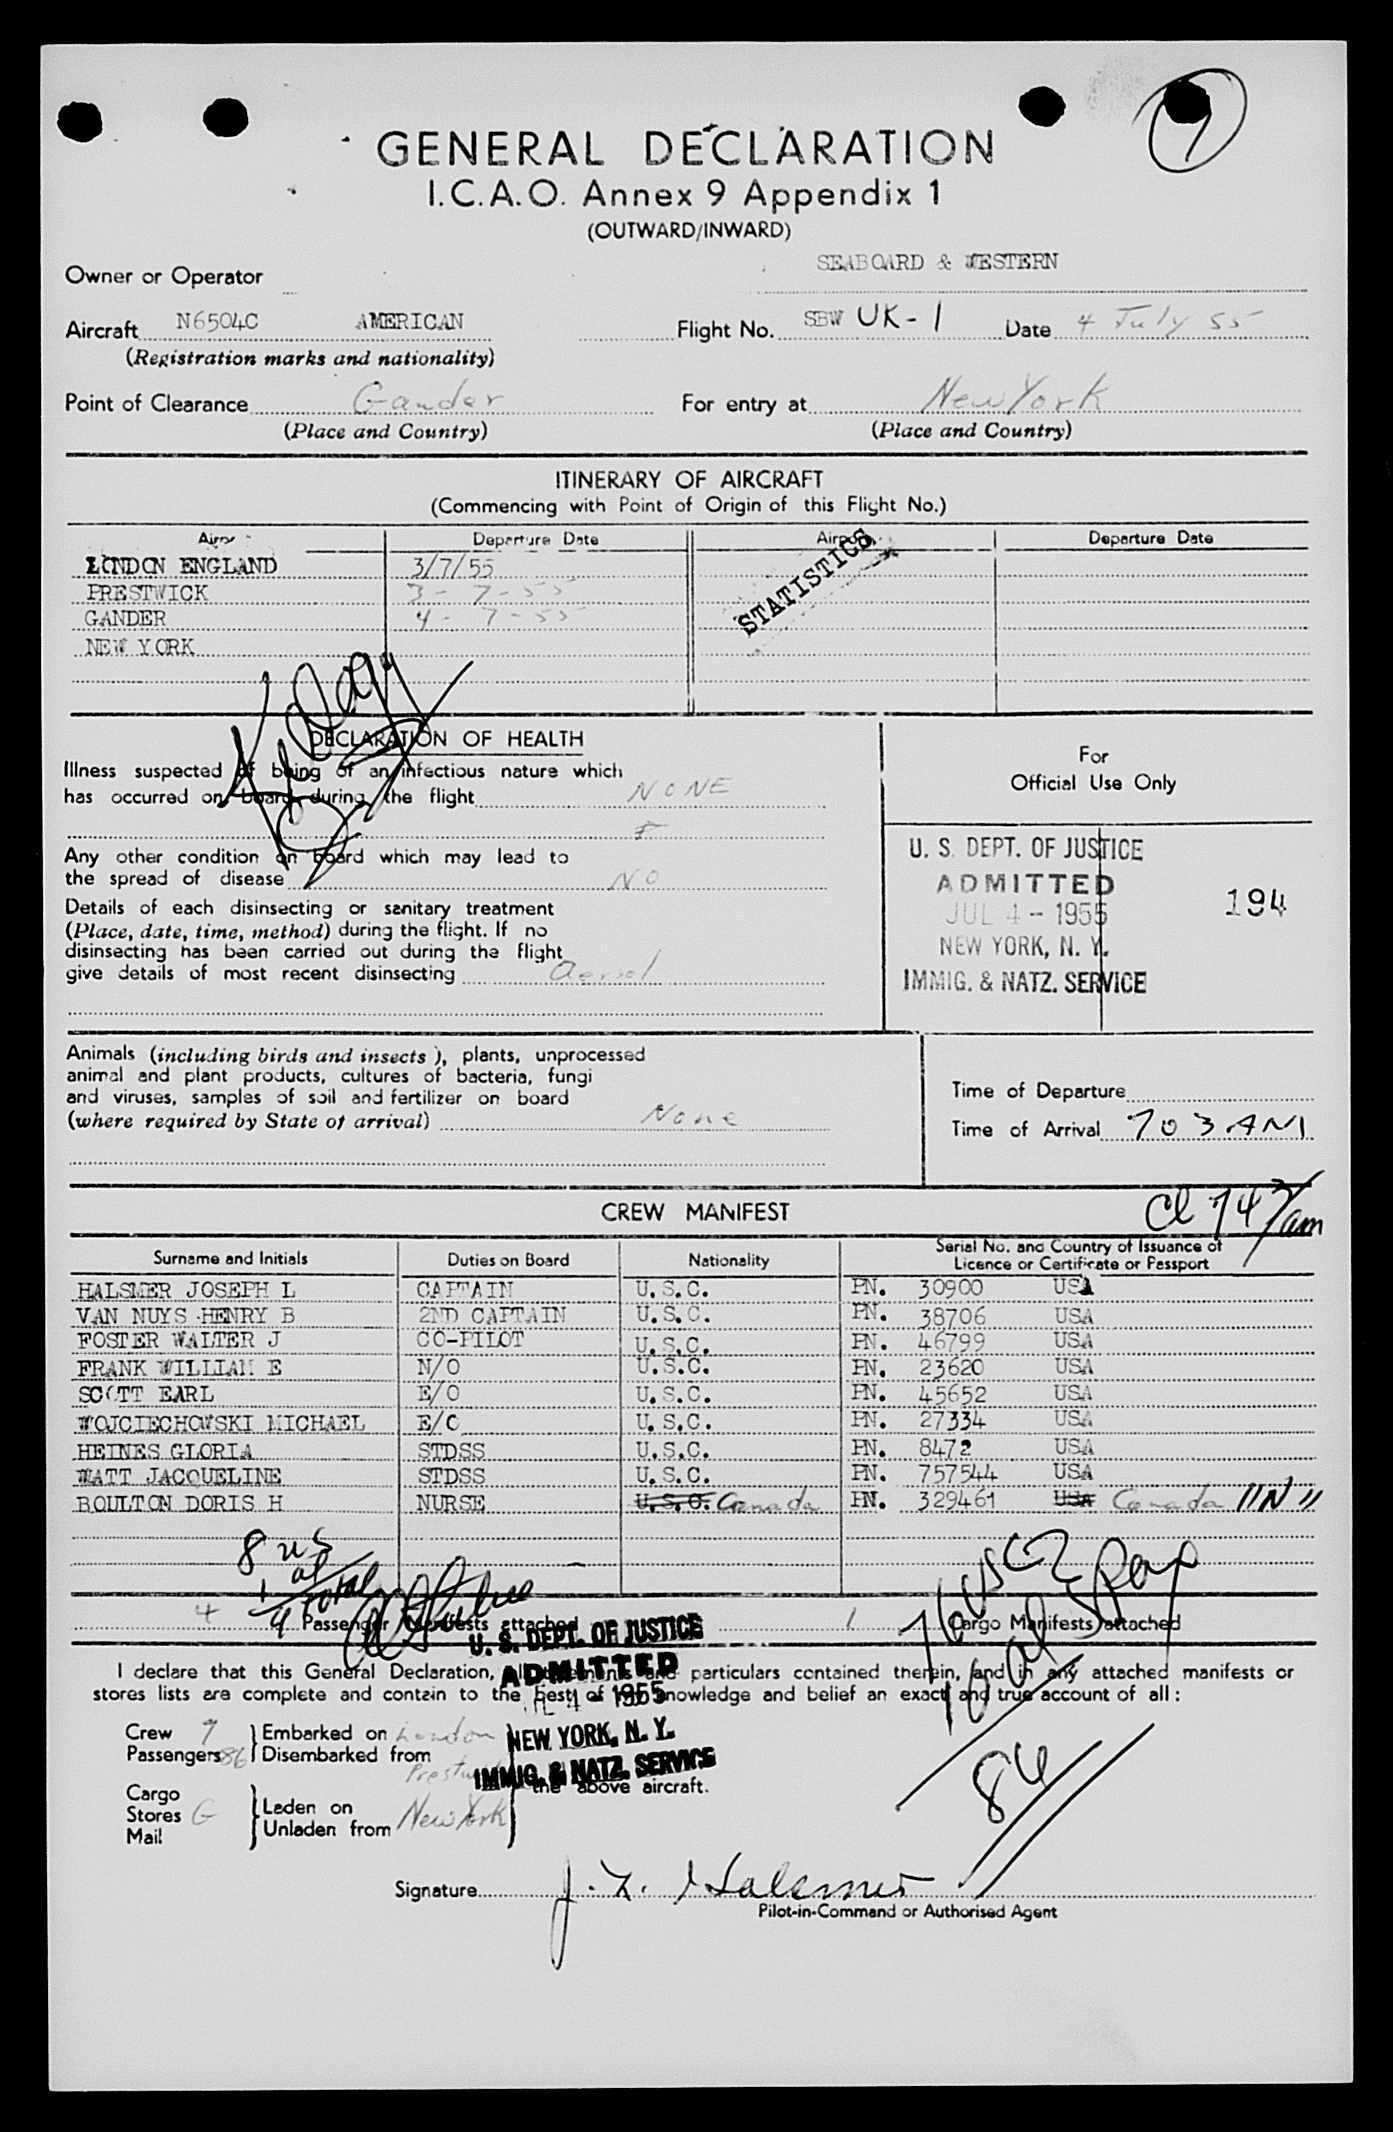 7
GENERAL DECLARATION
I.C.A.O. Annex 9 Appendix 1
(OUTWARD/INWARD)
Owner or Operator SEABOARD & WESTERN
Aircraft N6504C AMERICAN Flight No. SBW UK-1 Date 4 July 55
(Registration marks and nationality)
Point of Clearance Gander For entry at New York
(Place and Country) (Place and Country)
ITINERARY OF AIRCRAFT
(Commencing with Point of Origin of this Flight No.)
Departure Date Airport Departure Date
LONDON ENGLAND 3/7/55
PRESTWICK 3-7-55
GANDER 4-7-55
NEW YORK
STATISTICS
DECLARATION OF HEALTH
Illness suspected of being of an infectious nature which
has occurred on board during the flight NONE
Any other condition on board which may lead to
the spread of disease NO
Details of each disinsecting or sanitary treatment
(Place, date, time, method) during the flight. If no
disinsecting has been carried out during the flight
give details of most recent disinsecting aersol
For
Official Use Only
U. S. DEPT. OF JUSTICE
ADMITTED
JUL 4 - 1955
NEW YORK, N. Y.
IMMIG. & NATZ. SERVICE
194
Animals (including birds and insects), plants, unprocessed
animal and plant products, cultures of bacteria, fungi
and viruses, samples of soil and fertilizer on board
(where required by State of arrival) None
Time of Departure
Time of Arrival 703 AM
Cl 747 am
CREW MANIFEST
Surname and Initials Duties on Board Nationality Serial No. and Country of Issuance of
Licence or Certificate or Passport
HALSMER JOSEPH L CAPTAIN U.S.C. PN. 30900 USA
VAN NUYS HENRY B 2ND CAPTAIN U.S.C. PN. 38706 USA
FOSTER WALTER J CO-PILOT U.S.C. PN. 46799 USA
FRANK WILLIAM E N/O U.S.C. PN. 23620 USA
SCOTT EARL E/O U.S.C. PN. 45652 USA
WOJCIECHOWSKI MICHAEL E/O U.S.C. PN. 27334 USA
HEINES GLORIA STDSS U.S.C. PN. 8472 USA
WATT JACQUELINE STDSS U.S.C. PN. 757544 USA
BOULTON DORIS H NURSE U.S.C. Canada PN. 329461 USA Canada "N"
8 us
1 al
9 total
4 Passenger Manifests attached 1 Cargo Manifests attached
U. S. DEPT. OF JUSTICE
ADMITTED
1955
NEW YORK, N. Y.
IMMIG. & NATZ. SERVICE
I declare that this General Declaration, all statements and particulars contained therein, and in any attached manifests or
stores lists are complete and contain to the best of my knowledge and belief an exact and true account of all:
Crew 9 Embarked on London
Passengers 86 Disembarked from Prestwick
the above aircraft.
Cargo
Stores G Laden on
Mail Unladen from New York
86
Signature J. L. Halsmer
Pilot-in-Command or Authorised Agent